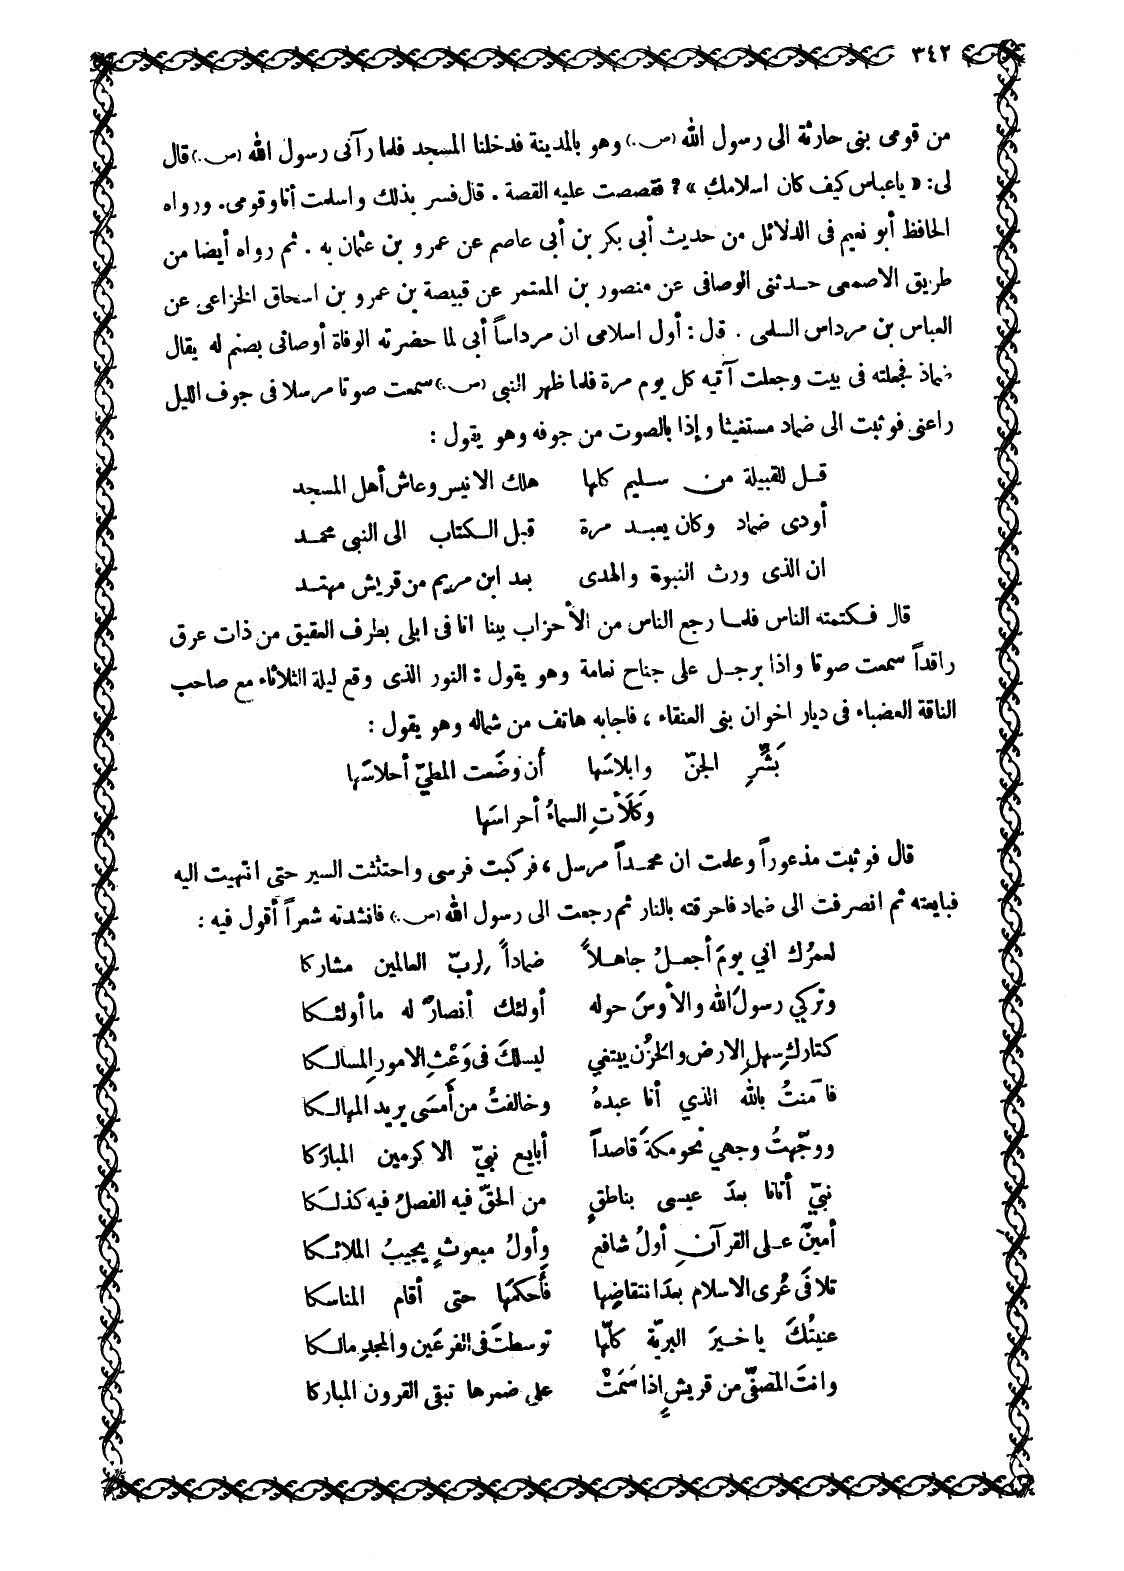 ٣٤٢
من قومى بنى حارثة الى رسول الله (ص.) وهو بالمدينة فدخلنا المسجد فلما رآنى رسول الله (ص.) قال
لى: « ياعباس كيف كان اسلامك » ? فقصصت عليه القصة . قال فسر بذلك واسلمت أنا وقومى. ورواه
الحافظ أبو نعيم فى الدلائل من حديث أبى بكر بن أبى عاصم عن عمرو بن عثمان به . ثم رواه أيضا من
طريق الاصمعى حدثنى الوصافى عن منصور بن المعتمر عن قبيصة بن عمرو بن اسحاق الخزاعى عن
العباس بن مرداس السلمى . قال : أول اسلامى ان مرداساً أبى لما حضرته الوفاة أوصانى بصنم له يقال
ضماذ فجعلته فى بيت وجعلت آتيه كل يوم مرة فلما ظهر النبى (ص.) سمعت صوتا مرسلا فى جوف الليل
راعنى فوثبت الى ضماد مستغيثا وإذا بالصوت من جوفه وهو يقول :
قل للقبيلة من سليم كلها هلك الانيس وعاش أهل المسجد
أودى ضماد وكان يعبد مرة قبل الكتاب الى النبى محمد
ان الذى ورث النبوة والهدى بعد ابن مريم من قريش مهتد
قال فكتمته الناس فلما رجع الناس من الأحزاب بينا انا فى ابلى بطرف العقيق من ذات عرق
راقداً سمعت صوتا واذا برجل على جناح نعامة وهو يقول : النور الذى وقع ليلة الثلاثاء مع صاحب
الناقة العضباء فى ديار اخوان بنى العنقاء ، فاجابه هاتف من شماله وهو يقول :
بَشِّرِ الجنّ وابلاسَها أن وضَعت المطيّ أحلاسَها
وكَلَأتِ السماءُ أحراسَها
قال فوثبت مذعوراً وعلمت ان محمداً مرسل ، فركبت فرسى واحتثثت السير حتى انتهيت اليه
فبايعته ثم انصرفت الى ضماد فاحرقته بالنار ثم رجعت الى رسول الله (ص.) فانشدته شعراً أقول فيه :
لعمرُك اني يومَ أجعلُ جاهلاً ضماداً لربّ العالمين مشاركا
وتركي رسولَ الله والأوسَ حوله أولئك أنصارٌ له ما أولئكا
كتارك سهلِ الارض والحزن يبتغي ليسلكَ فى وَعْثِ الامورِ المسالكا
فآمنتُ بالله الذي أنا عبدهُ وخالفتُ من أمسَى يريد المهالكا
ووجّهتُ وجهي نحو مكةَ قاصداً أبايع نبيّ الاكرمين المبارَكا
نبيّ أتانا بعدَ عيسى بناطقٍ من الحقّ فيه الفصلُ فيه كذلكا
أمينٌ على القرآنِ أولُ شافع وأولُ مبعوثٍ يجيبُ الملائكا
تلافَى عُرى الاسلام بعدَ انتقاضِها فأحكمَها حتى أقام المناسكا
عنيتُكَ يا خيرَ البريّة كلّها توسطتَ فى الفرعَين والمجدِ مالكا
وانتَ المصفّى من قريشٍ إذا سَمَتْ على ضمرها تبقى القرون المباركا